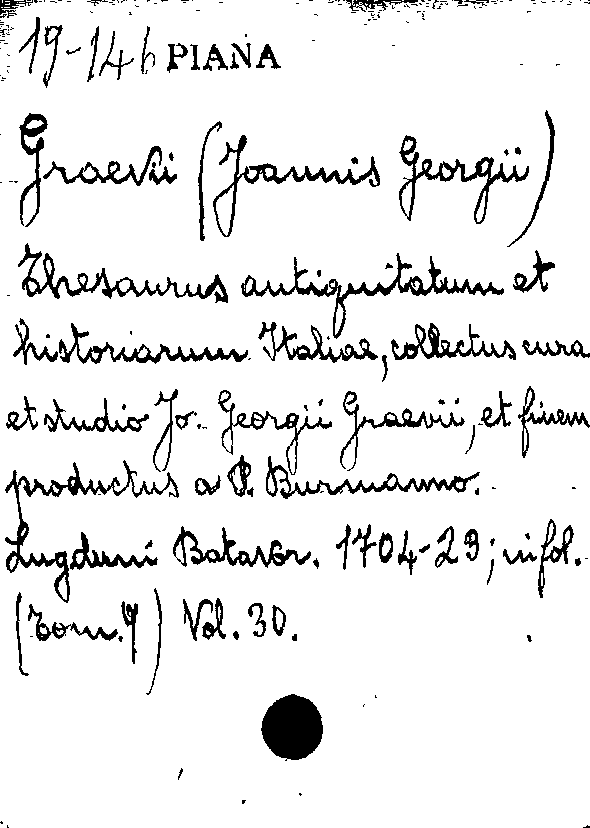 19-146 PIANA
Graevii (Joannis Georgii)
Thesaurus antiquitatum et
historiarum Italiae, collectus cura
et studio Jo. Georgii Graevii, et finem
productus a P. Burmanno.
Lugduni Batavor. 1704-23; in fol.
(Tom. 9) Vol. 30.